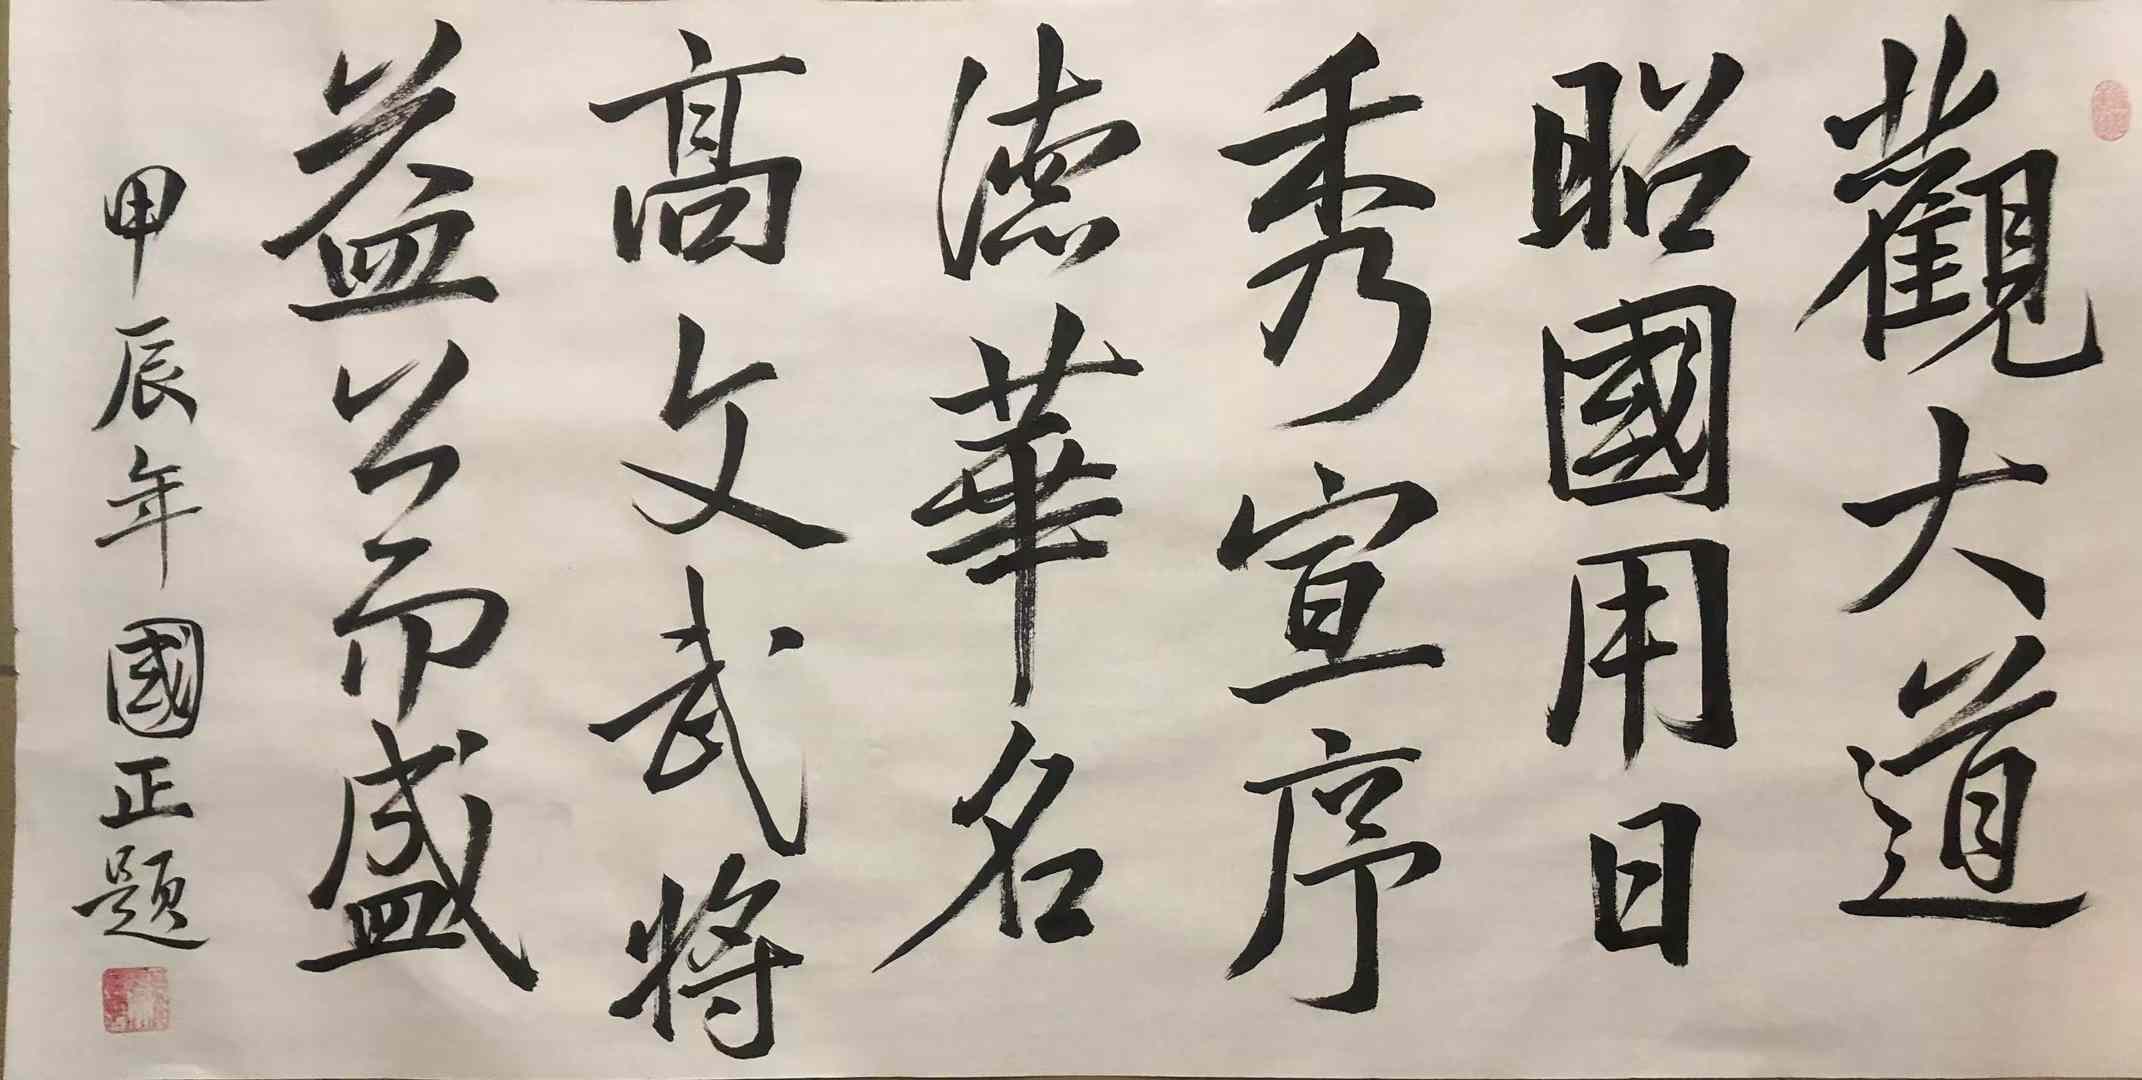 觀大道
昭國用日
秀宣序
德華名
高文武將
益公而盛
甲辰年國正題